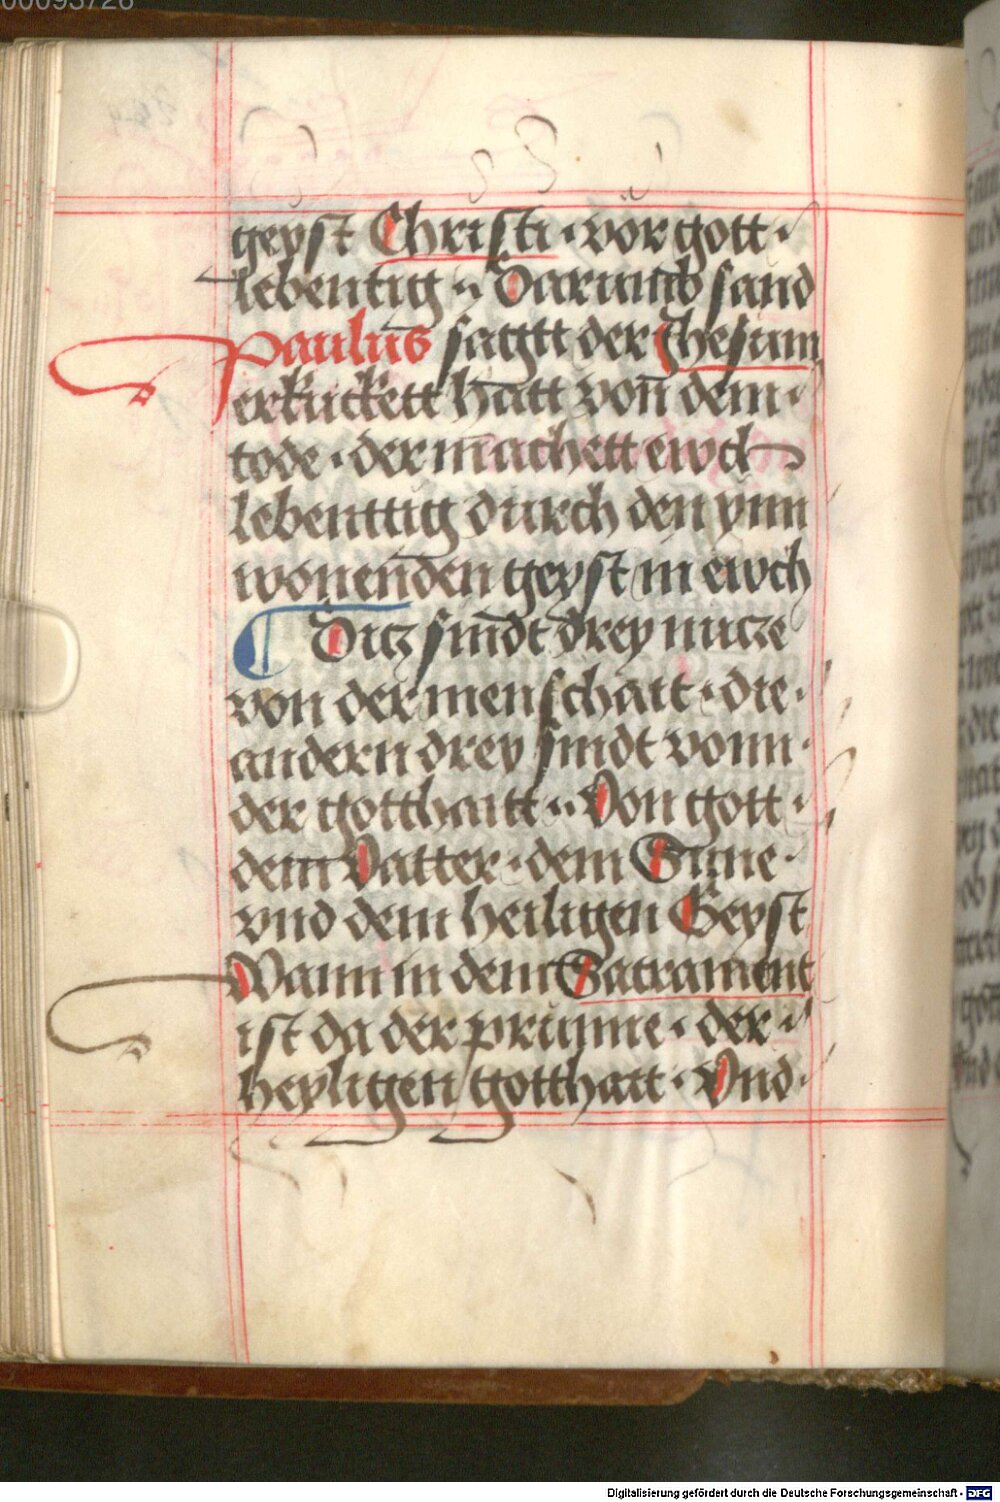 00093726
geyst Christi · vor gott ·
lebentig · Darumb sand
Paulus sagtt der Jhesum
erkuckett hatt von dem ·
tode · der machett ewch
lebenttig durch den ynn
wonenden geyst in ewch
¶ Ditz sindt drey nutze
von der menschatt · die ·
andern drey sindt vonn ·
der gotthatt · Von gott ·
dem Vatter · dem Sune ·
vnd dem heiligen Geyst
Wann in dem Sacrament
ist da der prunne · der ·
heyligen gotthatt · Vnd ·
Digitalisierung gefördert durch die Deutsche Forschungsgemeinschaft - DFG